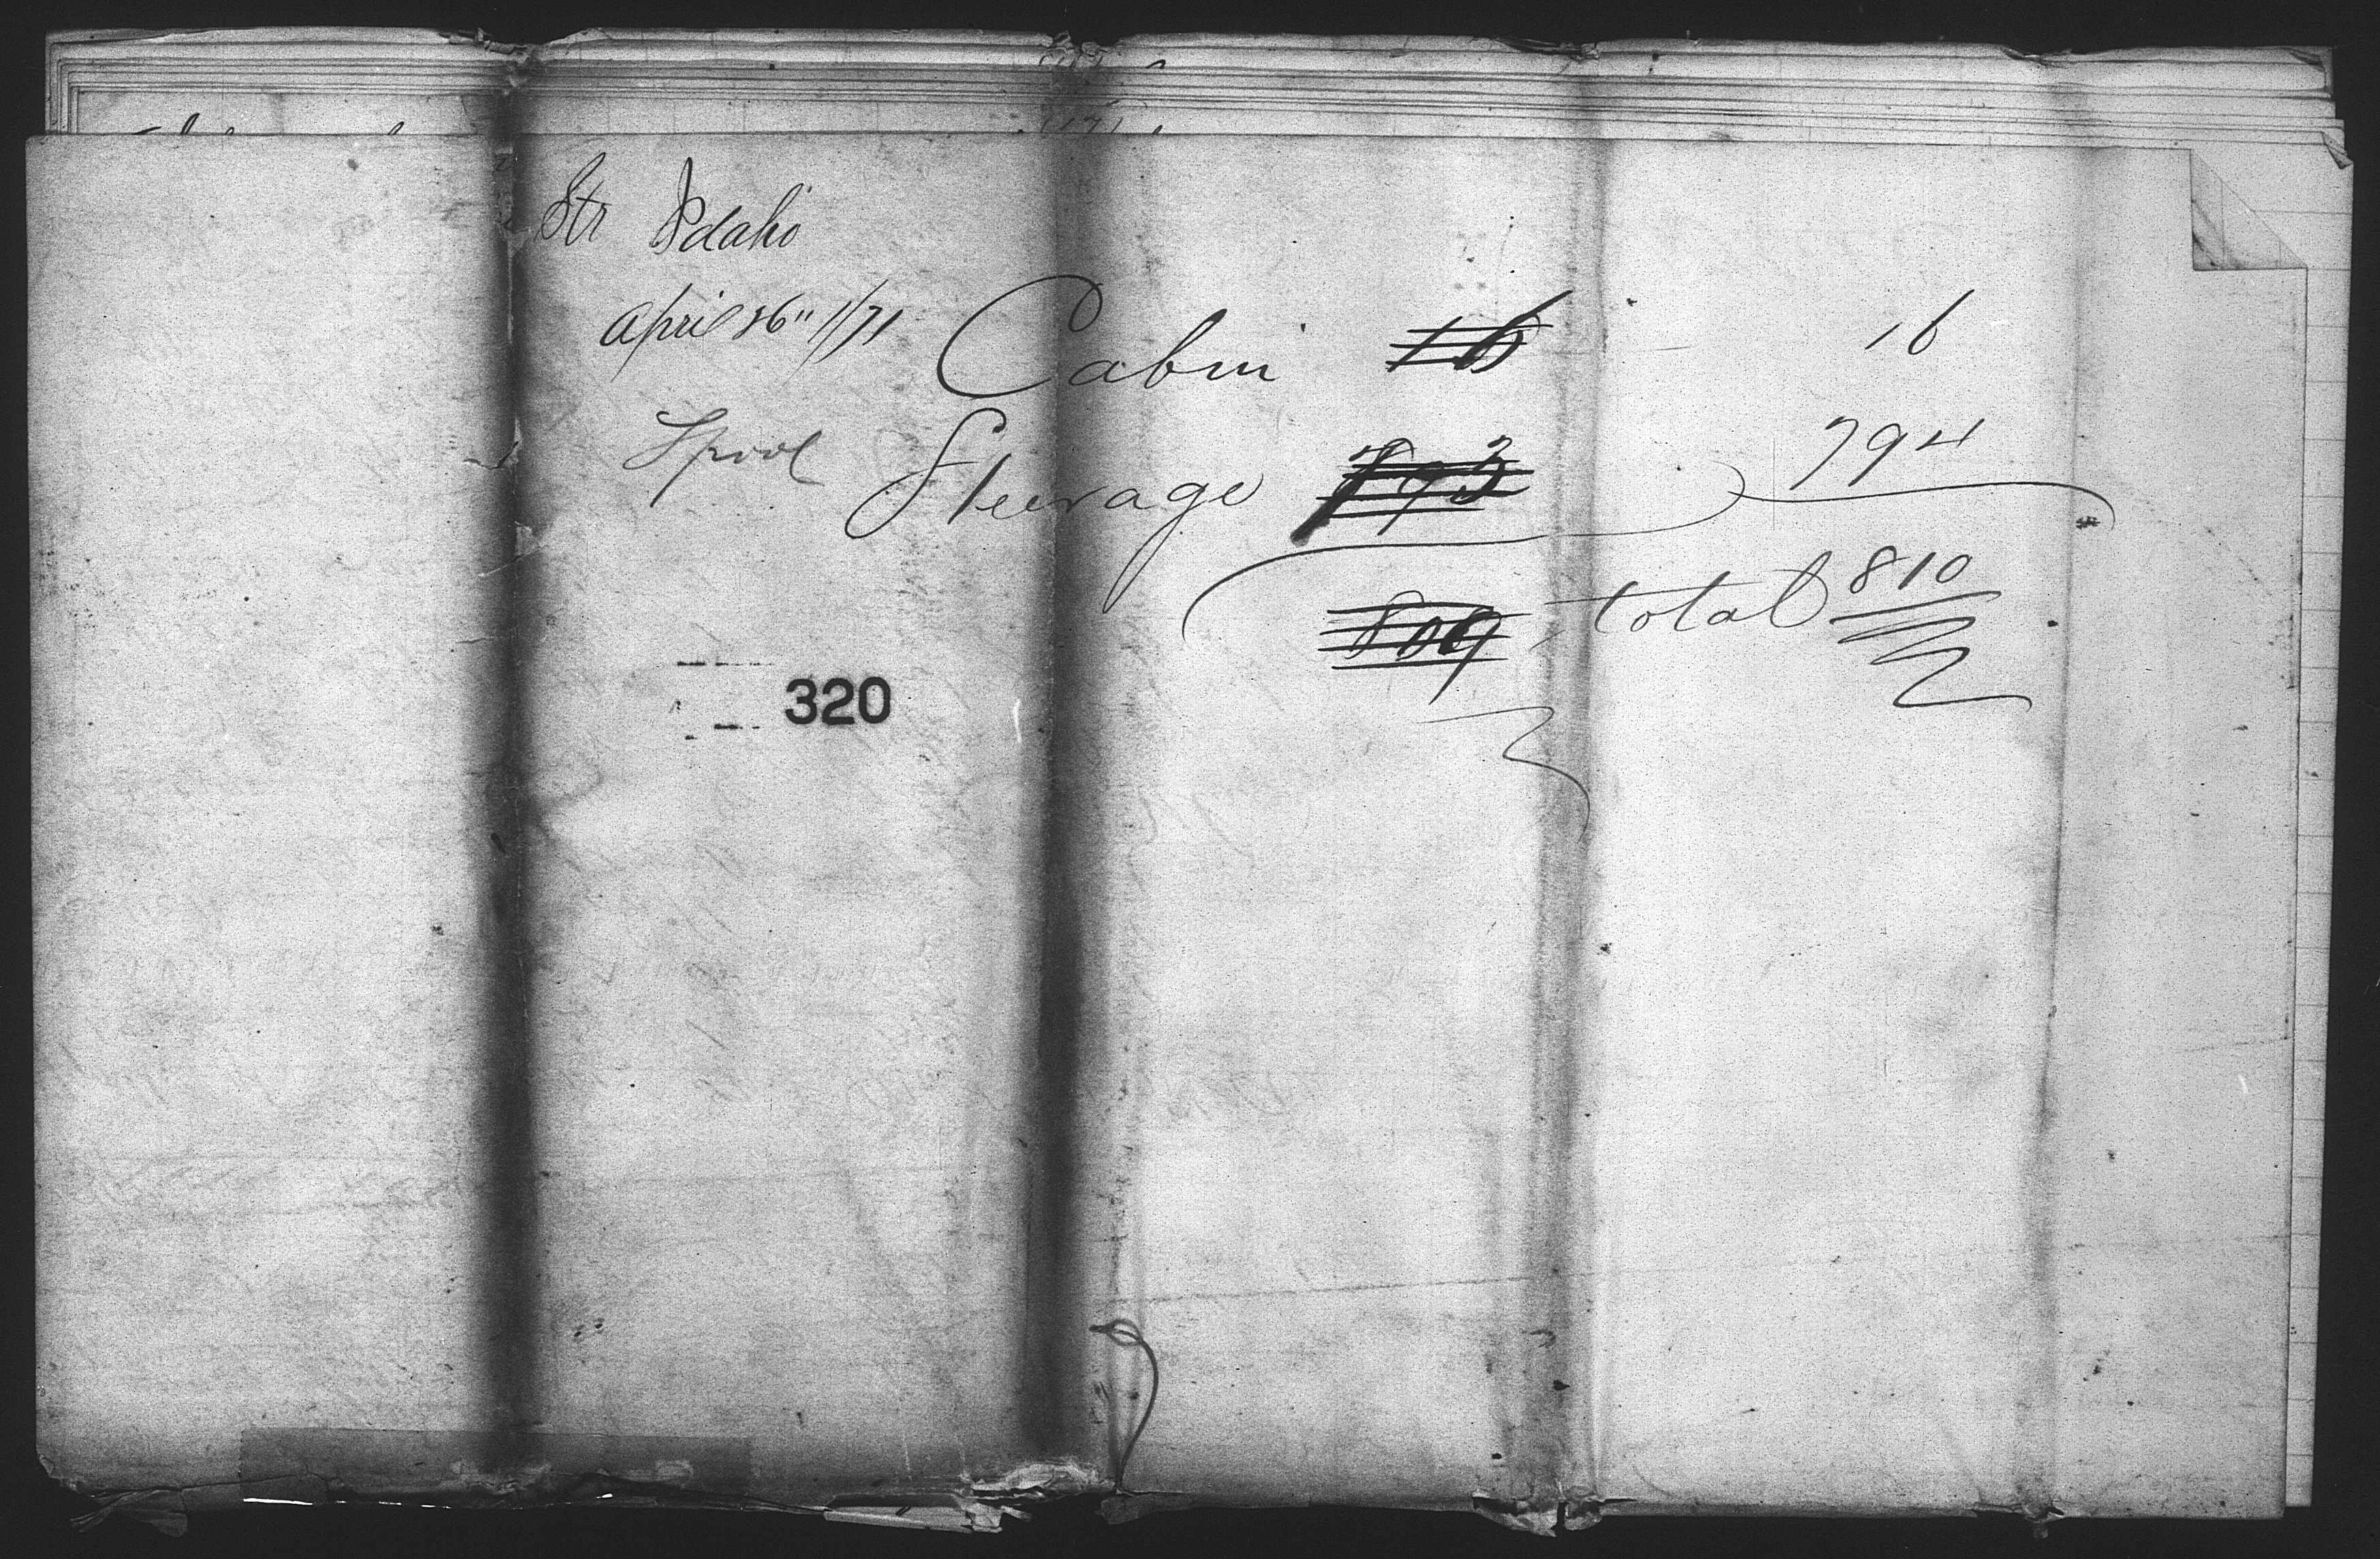 Str Idaho
April 26" 1/71
Lpool
Cabin 16 16
Steerage 793 794
809 total 810
320